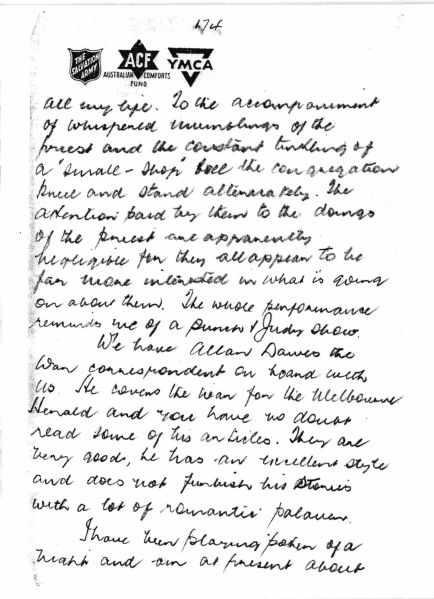 THE SALVATION ARMY
ACF
AUSTRALIAN COMFORTS FUND
YMCA
all my life. To the accompaniment
of whispered mumblings of the
priest and the constant tinkling of
a "small-shop" bell the congregation
kneel and stand alternately. The
attention paid by them to the doings
of the priest are apparently
negligible for they all appear to be
far more interested in what is going
on about them. The whole performance
reminds me of a punch & Judy show.
We have Allan Dawes the
war correspondent on board with
us. He covers the war for the Melbourne
Herald and you have no doubt
read some of his articles. They are
very good, he has an excellent style
and does not furbish his stories
with a lot of romantic palaver.
I have been playing poker of a
night and am at present about